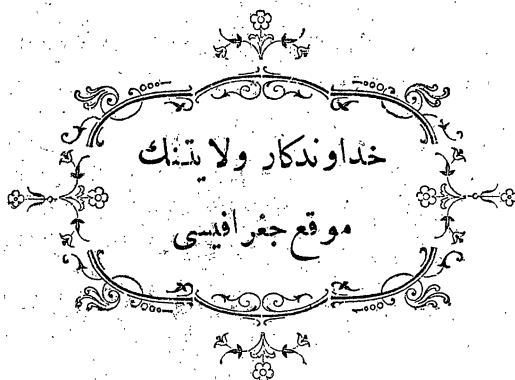 خداوندكار ولايتنك
موقع جغرافيسى